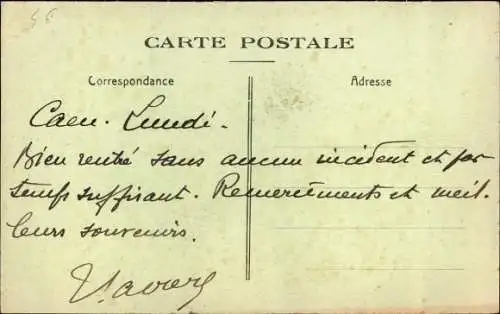 CARTE POSTALE
Correspondance
Adresse
Caen. Lundi.
Bien rentré sans aucun incident et par
temps suffisant. Remerciements et meil.
leurs souvenirs.